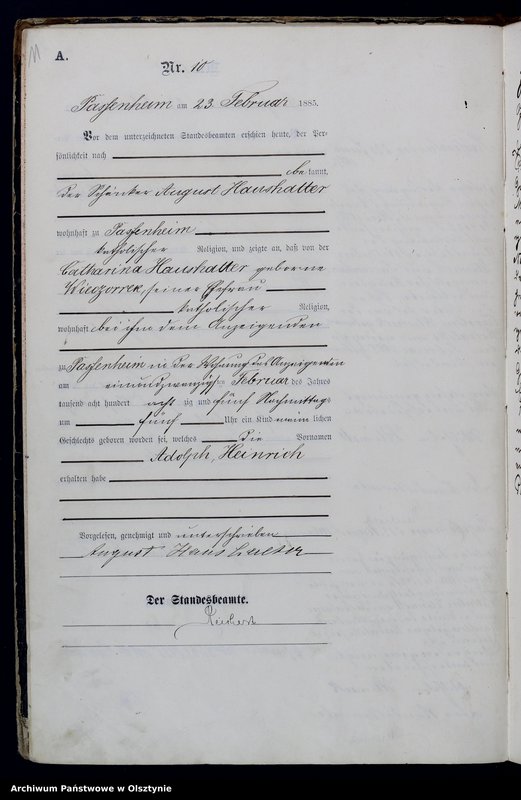 A.
Nr. 10
Passenheim am 23. Februar 1885.
Vor dem unterzeichneten Standesbeamten erschien heute, der Per-
sönlichkeit nach
bekannt,
August Haushalter
wohnhaft zu Passenheim
katholischer Religion, und zeigte an, daß von der
Catharina Haushalter geborne
Wieczorrek, seiner Ehefrau
katholischer Religion,
wohnhaft bei ihm dem Anzeigenden
zu Passenheim in der Wohnung des
am einundzwanzigsten Februar des Jahres
tausend acht hundert achtzig und fünf Nachmittags
um fünf Uhr ein Kind männlichen
Geschlechts geboren worden sei, welches die Vornamen
Adolph, Heinrich
erhalten habe
Vorgelesen, genehmigt und unterschrieben
August Haushalter
Der Standesbeamte.
Archiwum Państwowe w Olsztynie